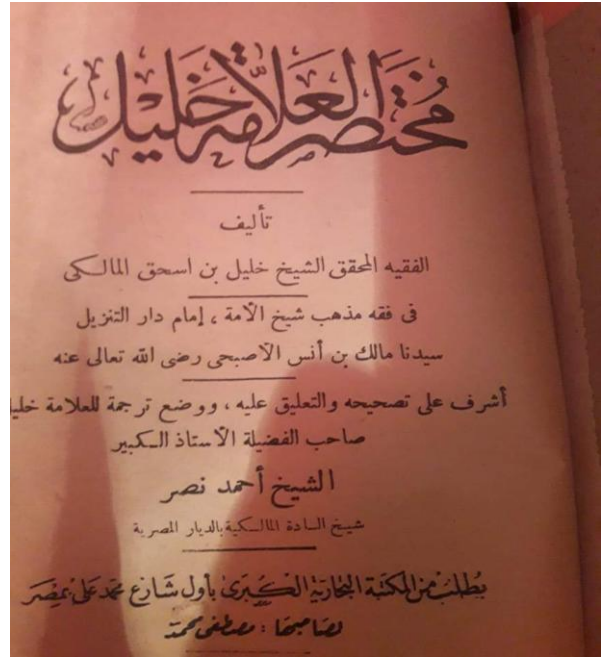 مُختصر العَلّامة خَليل
تأليف
الفقيه المحقق الشيخ خليل بن اسحق المالكى
فى فقه مذهب شيخ الأمة ، إمام دار التنزيل
سيدنا مالك بن أنس الأصبحى رضى الله تعالى عنه
أشرف على تصحيحه والتعليق عليه ، ووضع ترجمة للعلامة خليل
صاحب الفضيلة الأستاذ الكبير
الشيخ أحمد نصر
شيخ السادة المالكية بالديار المصرية
يُطلب من المكتبة التجارية الكبرى بأول شارع محمد على بمصر
لصاحبها : مصطفى محمد